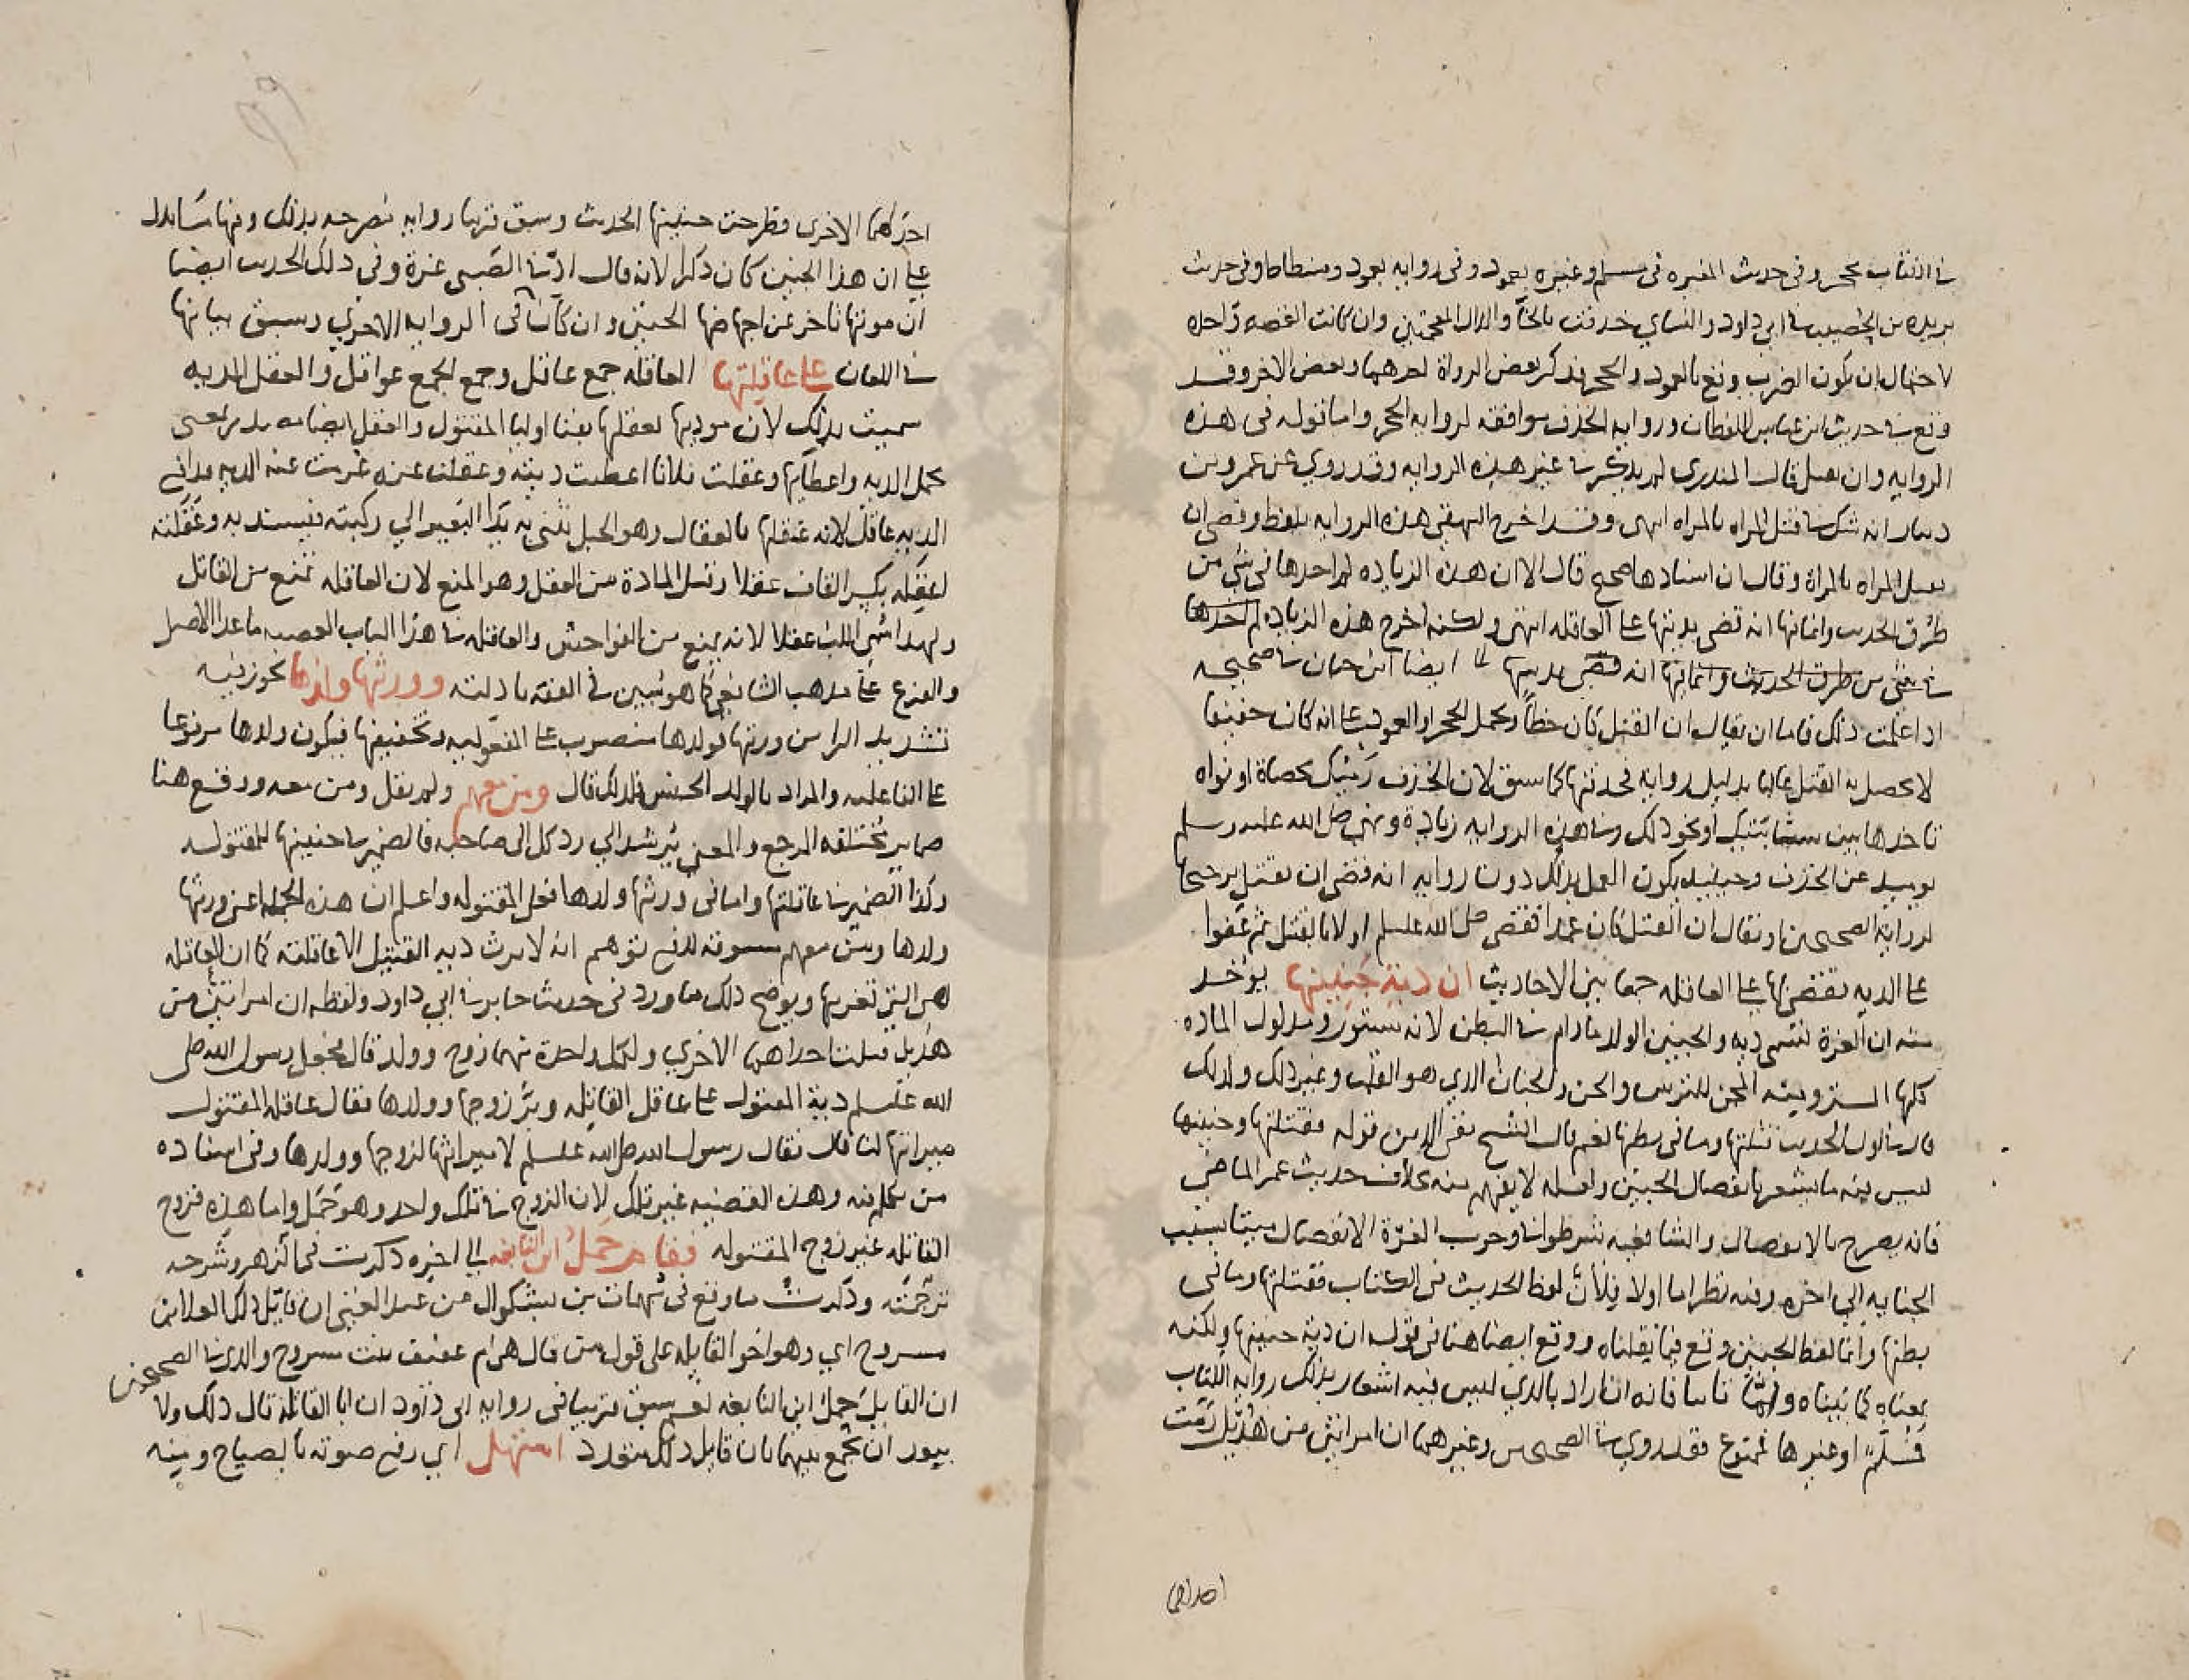 في الكتاب بحجر وفي حديث المغيرة في مسلم وغيره بعمود وفي رواية بعمود وفسطاط وفي حديث
بريدة بن الحصيب في ابي داود والنساي خذفت بالخا والذال المعجمتين وان كانت القصة واحدة
لاحتمال ان يكون الضرب وقع بالعمود والحجر فذكر بعض الرواة احدهما وبعض الاخر وقد
وقع في حديث ابن عباس اللفظان ورواية الخذف موافقة لرواية الحجر واما قوله في هذه
الرواية وان تقتل قال المنذري لم يذكر في غير هذه الرواية وقد روي عن عمرو بن
دينار انه شك في قتل المراه بالمراه انتهى وقد اخرج البيهقي هذه الرواية بلفظ وقضى ان
تقتل المراه بالمراة وقال ان اسنادها صحيح قال الا ان هذه الزيادة لم اجدها في شي من
طرق الحديث وانما فيها انه قضى بديتها على العاقلة انتهى ولكنه اخرج هذه الزيادة لم اجدها
في شي من طرق الحديث وانما فيها انه قضى بديتها ايضا ابن حبان في صحيحه
اذا علمت ذلك فاما ان يقال ان القتل كان خطأ ويحمل الحجر او العمود على انه كان خفيفا
لا يحصل به القتل غالبا بدليل رواية فخذفتها كما سبق لان الخذف رميك بحصاة او نواة
تاخذها بين سبابتيك او نحو ذلك وفي هذه الرواية زيادة ونهى صلى الله عليه وسلم
يوميذ عن الخذف وحينيذ يكون العمل بذلك دون رواية انه قضى ان تقتل يرجحها
لرواية الصحيحين او يقال ان القتل كان عمدا فقضى صلى الله عليه وسلم اولا بالقتل ثم عفوا
على الدية فقضى بها على العاقلة جمعا بين الاحاديث ان دية جنينها يوخذ
منه ان الغرة تسمى دية والجنين الولد مادام في البطن لانه مستور ومدلول المادة
كلها الستر ومنه المجن للترس والجن والجنان الذي هو القلب وغير ذلك ولذلك
قال في اول الحديث فقتلتها وما في بطنها نعم قال الشيخ تقي الدين قوله فقتلتها وجنينها
ليس فيه ما يشعر بانفصال الجنين ولعله لا يفهم منه بخلاف حديث عمر الماضي
فانه يصرح بالانفصال والشافعية شرطوا في وجوب الغرة الانفصال ميتا بسبب
الجناية الى اخره وفيه نظر اما اولا فلأن لفظ الحديث في الكتاب فقتلتها وما في
بطنها وانما لفظ الجنين وقع فيما نقلناه ووقع ايضا هنا في قوله ان دية جنينها ولكنه
بمعناه كما بيناه واما ثانيا فانه ان اراد بالذي ليس فيه اشعار بذلك رواية الكتاب
فمسلم او غيرها فممنوع فقد روي في الصحيحين وغيرهما ان امراتين من هذيل رمت
احداهما
احداهما الاخرى فطرحت جنينها الحديث وسبق قريبا رواية مصرحة بذلك وفيها ما يدل
على ان هذا الجنين كان ذكرا لانه قال اديه الصبي غرة وفي ذلك الحديث ايضا
ان موتها تاخر عن اجهاضها الجنين وان كانت في الرواية الاخرى وسبق بيانها
في اللعان على عاقلتها العاقلة جمع عاقل وجمع الجمع عواقل والعقل الدية
سميت بذلك لان موديها يعقلها بفنا اوليا المقتول والعقل ايضا مصدر بمعنى
تحمل الدية واعطايها وعقلت فلانا اعطيت ديته وعقلت عنه غرمت عنه الدية
الدية عاقل لانه عقلها بالعقال وهو الحبل تثنى به يد البعير الي ركبته فيشد به وعقلته
اعقله بكسر القاف عقلا وقيل المادة من العقل وهو المنع لان العاقلة تمنع من القاتل
ولهذا سمي اللب عقلا لانه يمنع من الفواحش والعاقلة في هذا الباب العصبة ماعدا الاصل
والفرع على مذهب الشافعي كما هو مبين في الفقه بادلته وورثها ولدها يجوز فيه
تشديد الرا من ورثها فولدها منصوب على المفعولية وتخفيفها فيكون ولدها مرفوعا
على الفاعلية والمراد بالولد الجنس فلذلك قال ومن معهم ولم يقل ومن معه ووقع هنا
ضماير مختلفة المرجع والمعنى يرشد الى رد كل الى صاحبه فالضمير في جنينها للمقتولة
وكذا الضمير في عاقلتها واما في ورثها ولدها فعلى المقتولة واعلم ان هذه الجملة اعني ورثها
ولدها ومن معهم مسوقة لدفع توهم انه لا يرث دية القتيل الا عاقلته كما ان العاقلة
هي التي تغرمها ويوضح ذلك ما ورد في حديث جابر في ابي داود ولفظه ان امراتين من
هذيل قتلت احداهما الاخرى ولكل واحدة منهما زوج وولد قال فجعل رسول الله صلى
الله عليه وسلم دية المقتولة على عاقلة القاتلة وبرأ زوجها وولدها فقال عاقلة المقتولة
ميراثها لنا قال فقال رسول الله صلى الله عليه وسلم لا ميراثها لزوجها وولدها وفي اسناده
من تكلم فيه وهذه القضية غير تلك لان الزوج في تلك واحد وهو حمل واما هذه فزوج
القاتلة غير زوج المقتولة فقام حمل ابن النابغه الى اخره ذكرت في الزهر وشرحه
ترجمته وذكرت ما وقع في مبهمات بن بشكوال عن عبد الغني ان قايل ذلك العلا ابن
مسروح اي وهو اخو القاتلة على قول من قال هي ام عفيف بنت مسروح والذي في الصحيحين
ان القايل حمل ابن النابغة نعم سبق قريبا في رواية ابي داود ان ابا القاتلة قال ذلك ولا
يبعد ان يجمع بينهما بان قايل ذلك متعدد استهل اي رفع صوته بالصياح ومنه